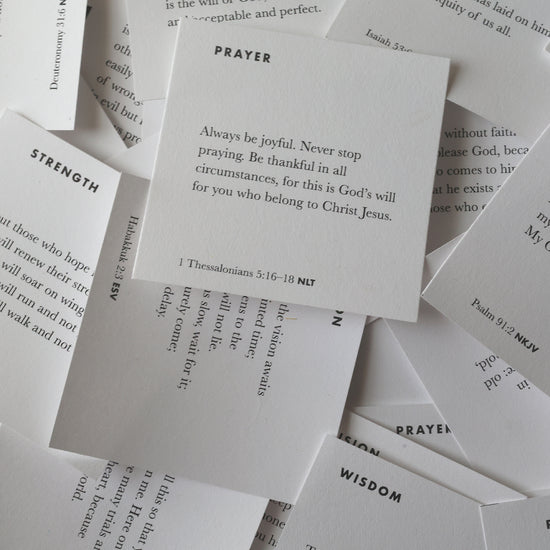 PRAYER
Always be joyful. Never stop
praying. Be thankful in all
circumstances, for this is God's will
for you who belong to Christ Jesus.
1 Thessalonians 5:16–18 NLT
is the will of
acceptable and perfect.
Deuteronomy 31:6
oth
easily
of wrong
evil but
has laid on him
iquity of us all.
Isaiah 53:6
without faith
please God, beca
comes to him
he exists a
those who
STRENGTH
but those who hope
will renew their stre
will soar on wing
will run and not
will walk and not
Habakkuk 2:3 ESV
the vision awaits
inted time;
ens to the
will not lie.
s slow, wait for it;
urely come;
delay.
ON
My G
Psalm 91:2 NKJV
old,
PRAYER
VISION
WISDOM
ll this so that y
n me. Here on
e many trials an
heart, because
orld.